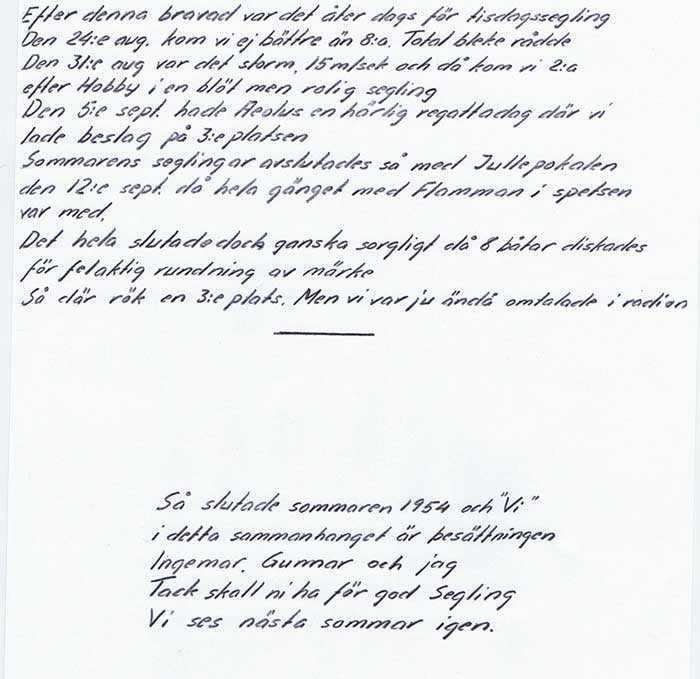 Efter denna bravad var det åter dags för tisdagssegling
Den 24:e aug. kom vi ej bättre än 8:a. Total bleke rådde
Den 31:e aug var det storm, 15 m/sek och då kom vi 2:a
efter Hobby i en blöt men rolig segling
Den 5:e sept. hade Aeolus en härlig regattadag där vi
lade beslag på 3:e platsen
Sommarens seglingar avslutades så med Jullepokalen
den 12:e sept. då hela gänget med Flamman i spetsen
var med.
Det hela slutade dock ganska sorgligt då 8 båtar diskades
för felaktig rundning av märke
Så där rök en 3:e plats. Men vi var ju ändå omtalade i radion
Så slutade sommaren 1954 och "Vi"
i detta sammanhanget är besättningen
Ingemar, Gunnar och jag
Tack skall ni ha för god Segling
Vi ses nästa sommar igen.